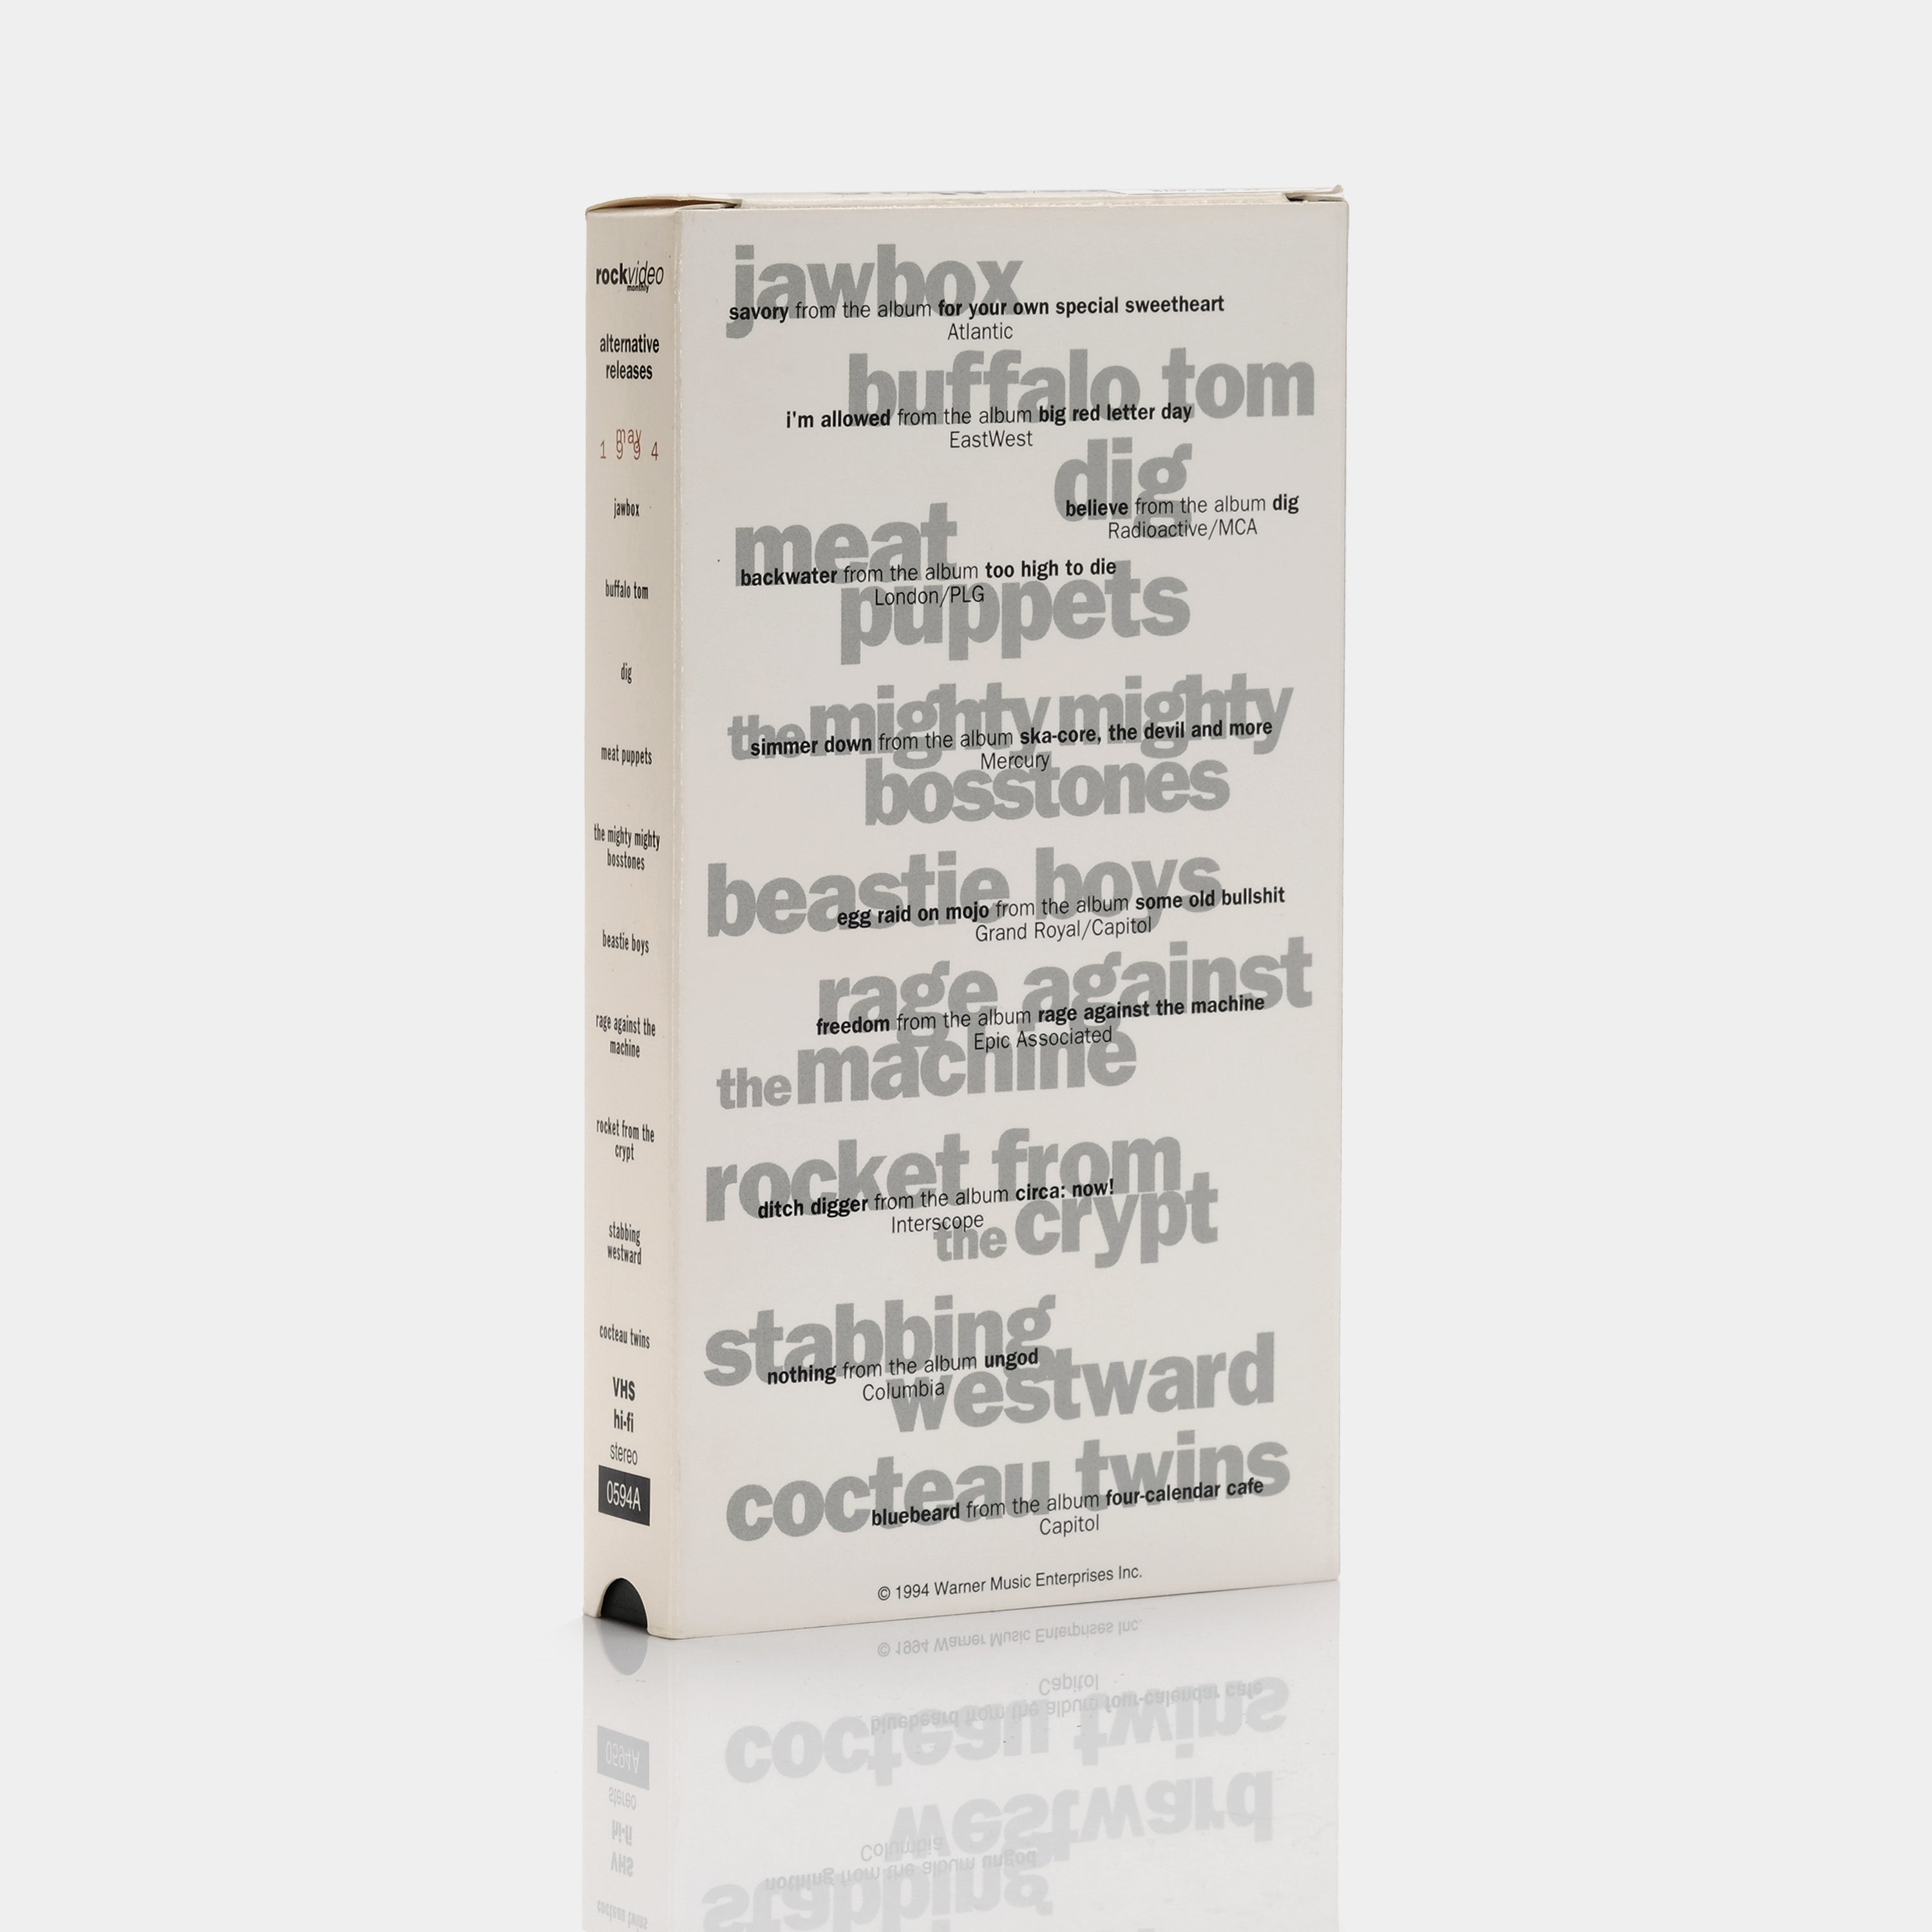 rockvideo
monthly
alternative
releases
may
1 9 9 4
jawbox
buffalo tom
dig
meat puppets
the mighty mighty
bosstones
beastie boys
rage against the
machine
rocket from the
crypt
stabbing
westward
cocteau twins
VHS
hi-fi
stereo
0594A
jawbox
savory from the album for your own special sweetheart
Atlantic
buffalo tom
i'm allowed from the album big red letter day
EastWest
dig
believe from the album dig
Radioactive/MCA
meat
backwater from the album too high to die
London/PLG
puppets
the mighty mighty
simmer down from the album ska-core, the devil and more
Mercury
bosstones
beastie boys
egg raid on mojo from the album some old bullshit
Grand Royal/Capitol
rage against
freedom from the album rage against the machine
Epic Associated
the machine
rocket from
ditch digger from the album circa: now!
Interscope
the crypt
stabbing
nothing from the album ungod
Columbia
westward
cocteau twins
bluebeard from the album four-calendar cafe
Capitol
© 1994 Warner Music Enterprises Inc.